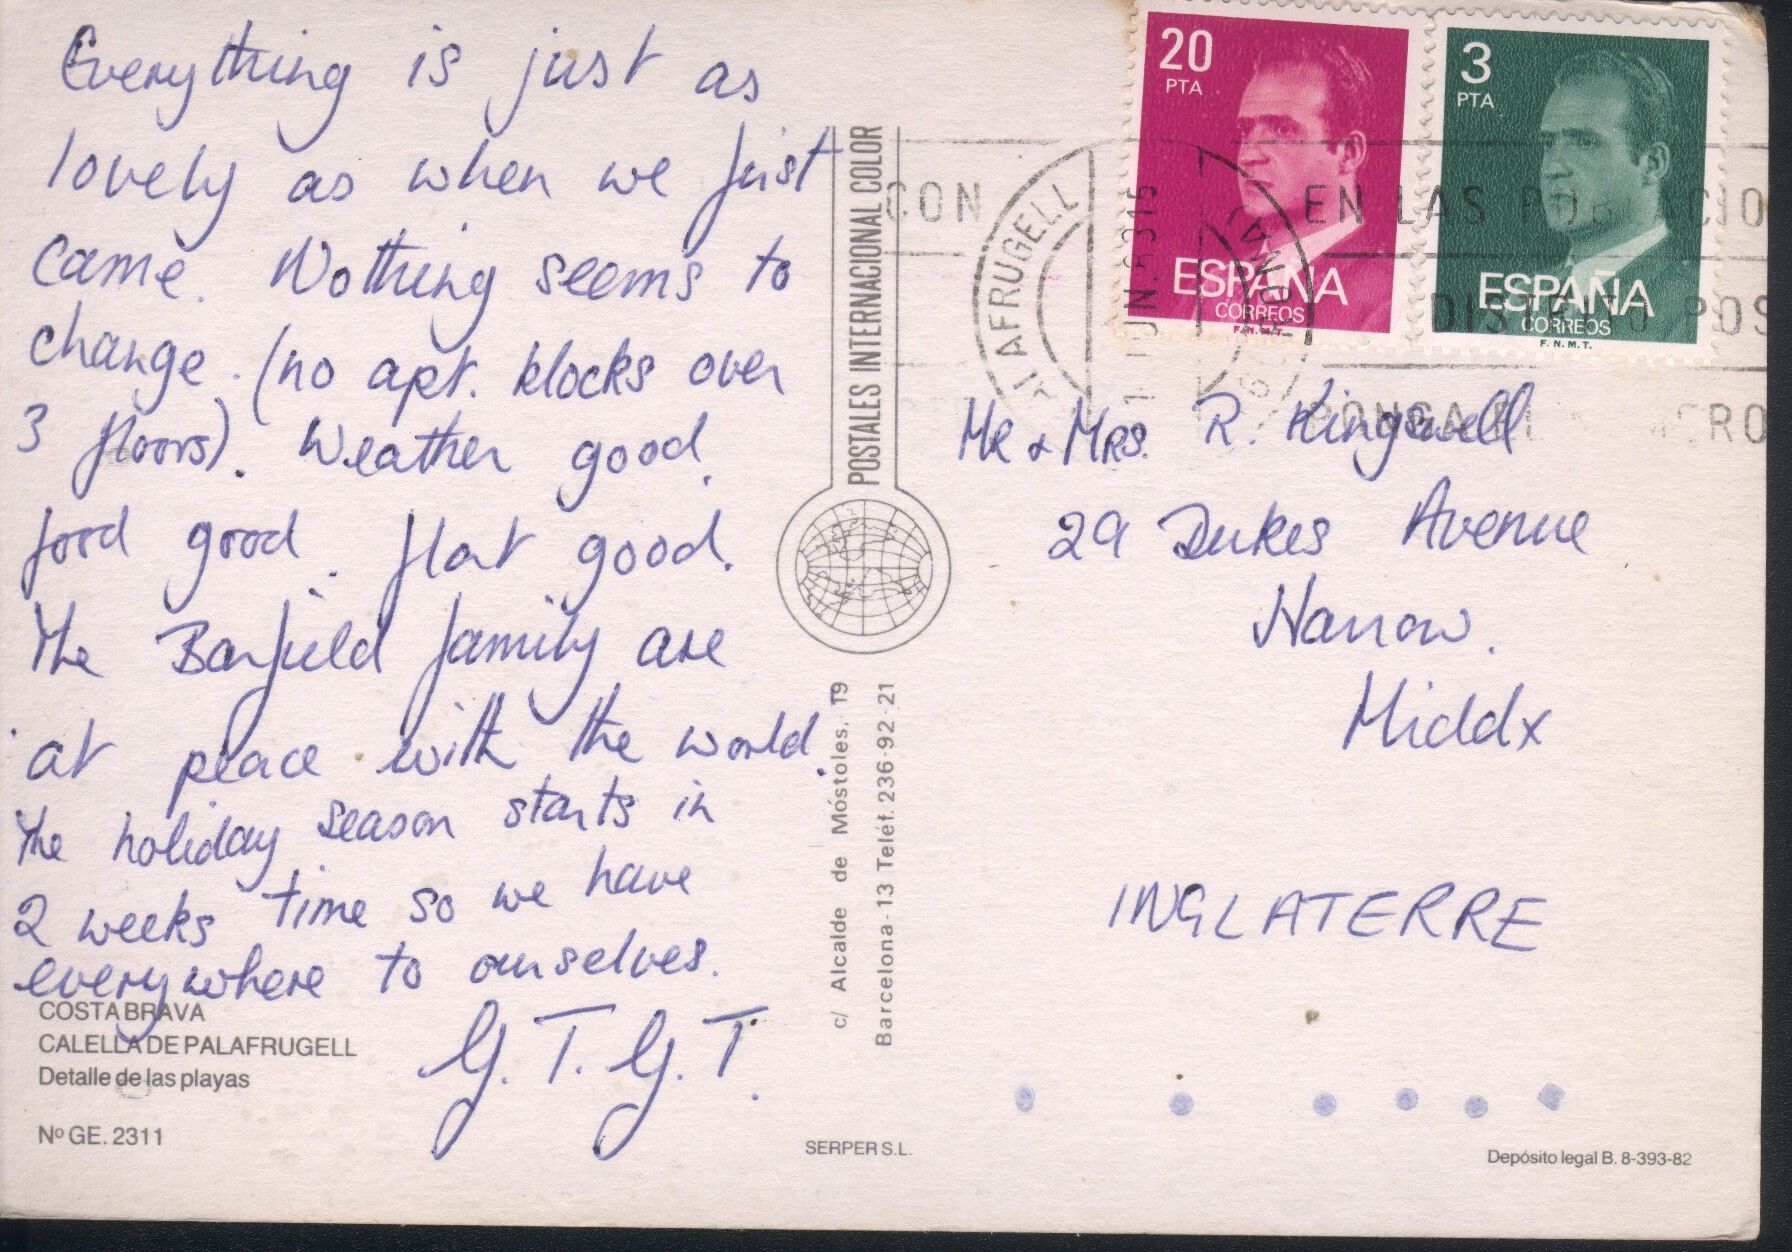 Everything is just as
lovely as when we first
came. Nothing seems to
change. (no apt. blocks over
3 floors). Weather good.
food good. flat good.
The Barfield family are
at peace with the world.
The holiday season starts in
2 weeks time so we have
everywhere to ourselves.
G. T. G. T.
COSTA BRAVA
CALELLA DE PALAFRUGELL
Detalle de las playas
Nº GE. 2311
POSTALES INTERNACIONAL COLOR
c/ Alcalde de Móstoles, 19
Barcelona-13 Teléf. 236-92-21
SERPER S.L.
20
PTA
ESPAÑA
CORREOS
F.N.M.T.
3
PTA
ESPAÑA
CORREOS
F.N.M.T.
CON
EN LAS
DISTRITO POS
PONGA EL
AFRUGELL
Mr & Mrs. R. Kingswell
29 Dukes Avenue
Harrow.
Middx
INGLATERRE
Depósito legal B. 8-393-82